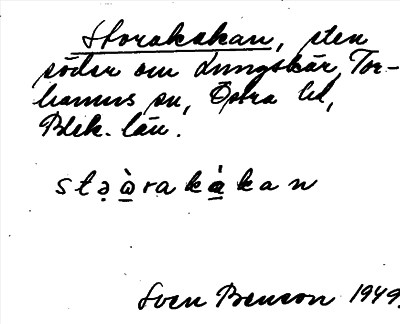 Storakakan, sten
söder om Lungskär, Tor-
hamns sn, Östra hd,
Blek. län.
stə̣ὰ̱rakὰ̱kan
Sven Benson 1949.